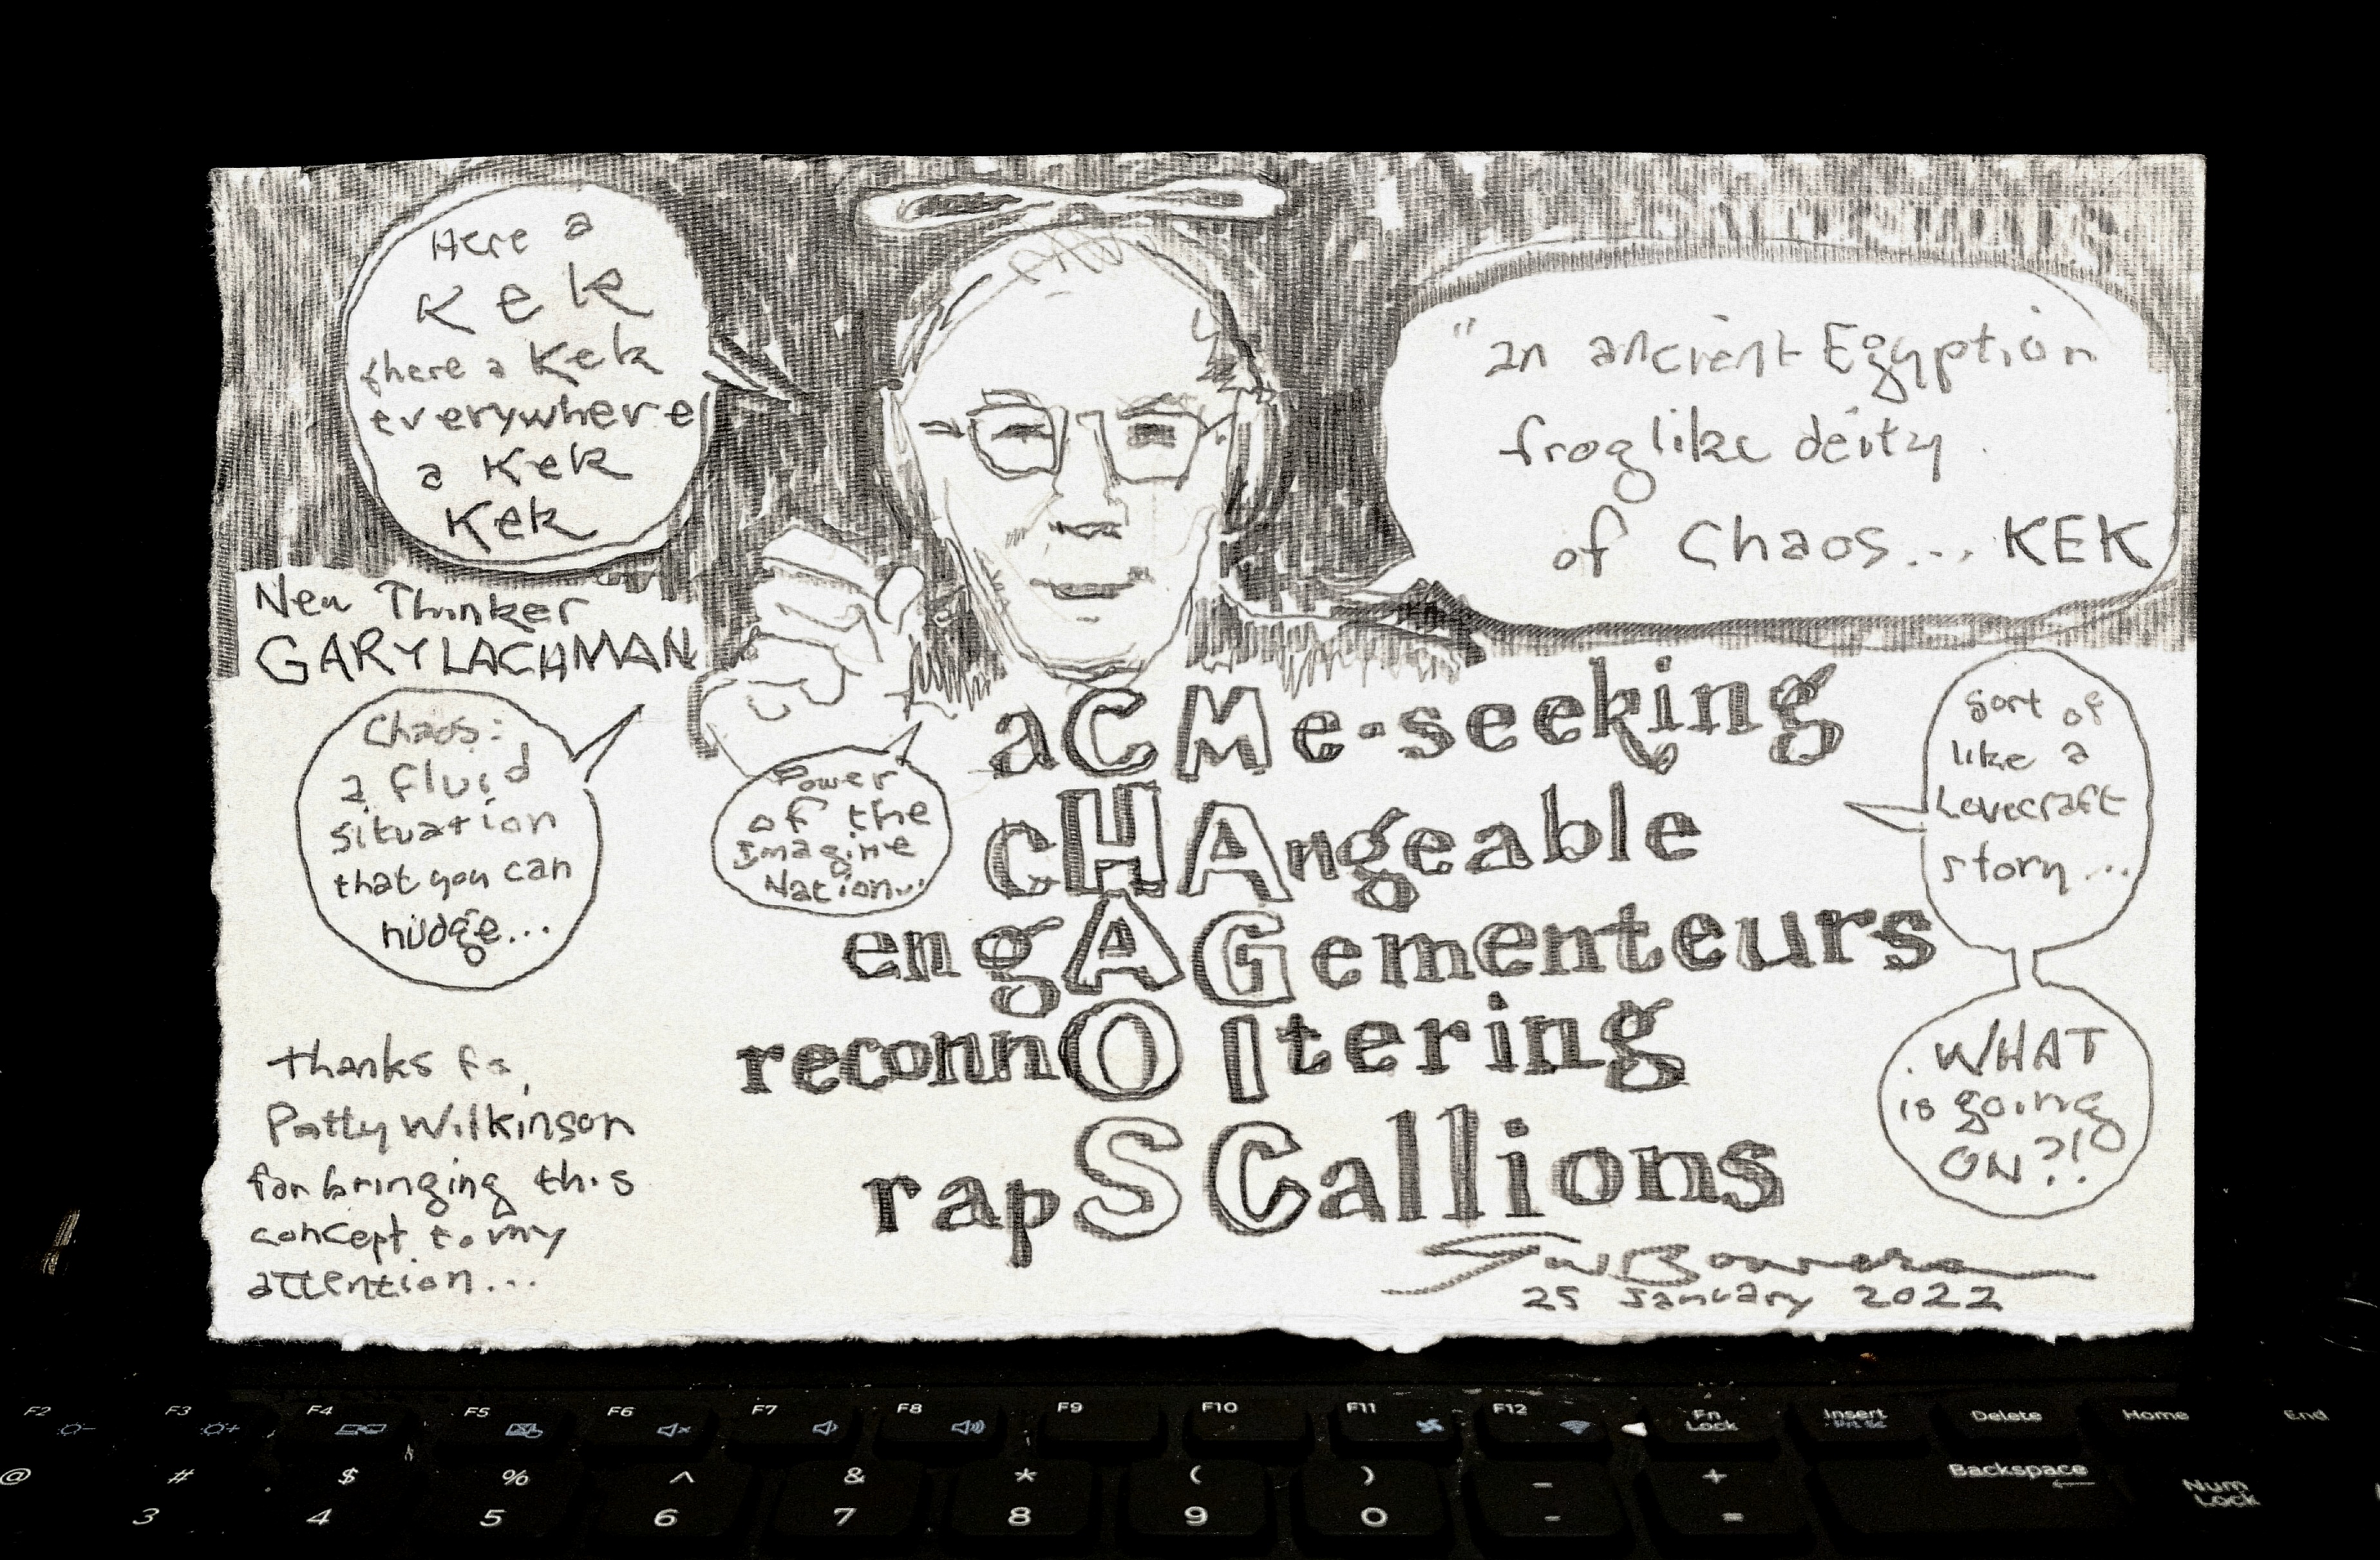 Here a
Kek
there a Kek
everywhere
a Kek
Kek
"an ancient Egyption
froglike deity
of Chaos... KEK
New Thinker
GARY LACHMAN
Chaos:
a fluid
situation
that you can
nudge...
Power
of the
Imagine
Nation...
aCMe-seeking
cHAngeable
engAGementeurs
reconnOItering
rapSCallions
Sort of
like a
Lovecraft
story...
WHAT
is going
ON?!
thanks to
Patty Wilkinson
for bringing this
concept to my
attention...
25 January 2022
F2 F3 F4 F5 F6 F7 F8 F9 F10 F11 F12 Fn Lock Insert Prt Sc Delete Home End
@ # $ % ^ & * ( ) _ + Backspace Num Lock
3 4 5 6 7 8 9 0 - =